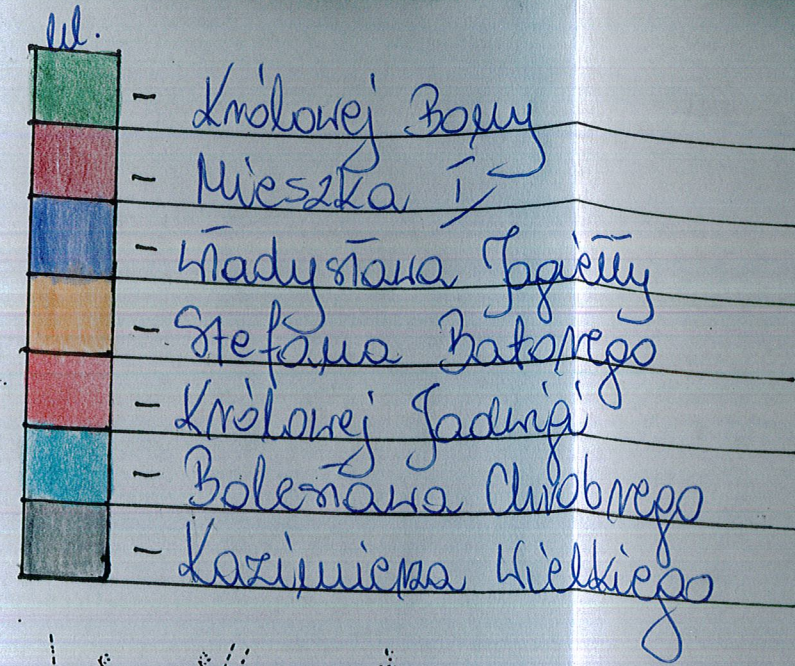 ul.
- Królowej Bony
- Mieszka I
- Władysława Jagiełły
- Stefana Batorego
- Królowej Jadwigi
- Bolesława Chrobrego
- Kazimierza Wielkiego